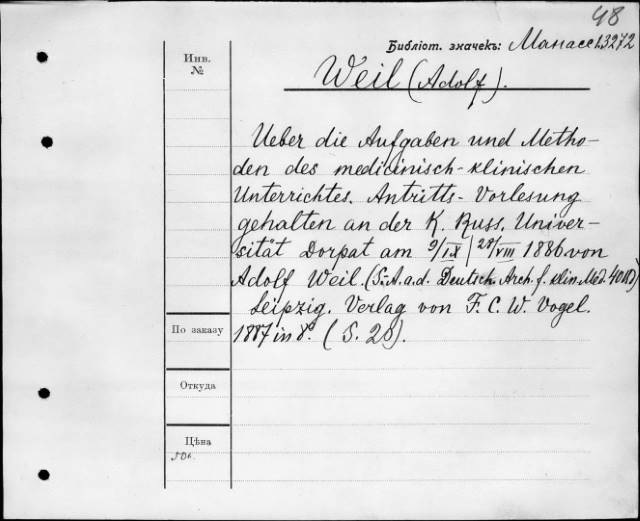 48
Библіот. значекъ: Манасс 13272
Инв.
№
Weil (Adolf).
Ueber die Aufgaben und Metho-
den des medicinisch-klinischen
Unterrichtes. Antritts-Vorlesung
gehalten an der K. Russ. Univer-
sität Dorpat am 9/IX / 28/VIII 1886 von
Adolf Weil. (S.-A. a. d. Deutsch. Arch. f. klin. Med. 40 Bd)
Leipzig. Verlag von F. C. W. Vogel.
1887 in 8º. (S. 28).
По заказу
Откуда
Цѣна